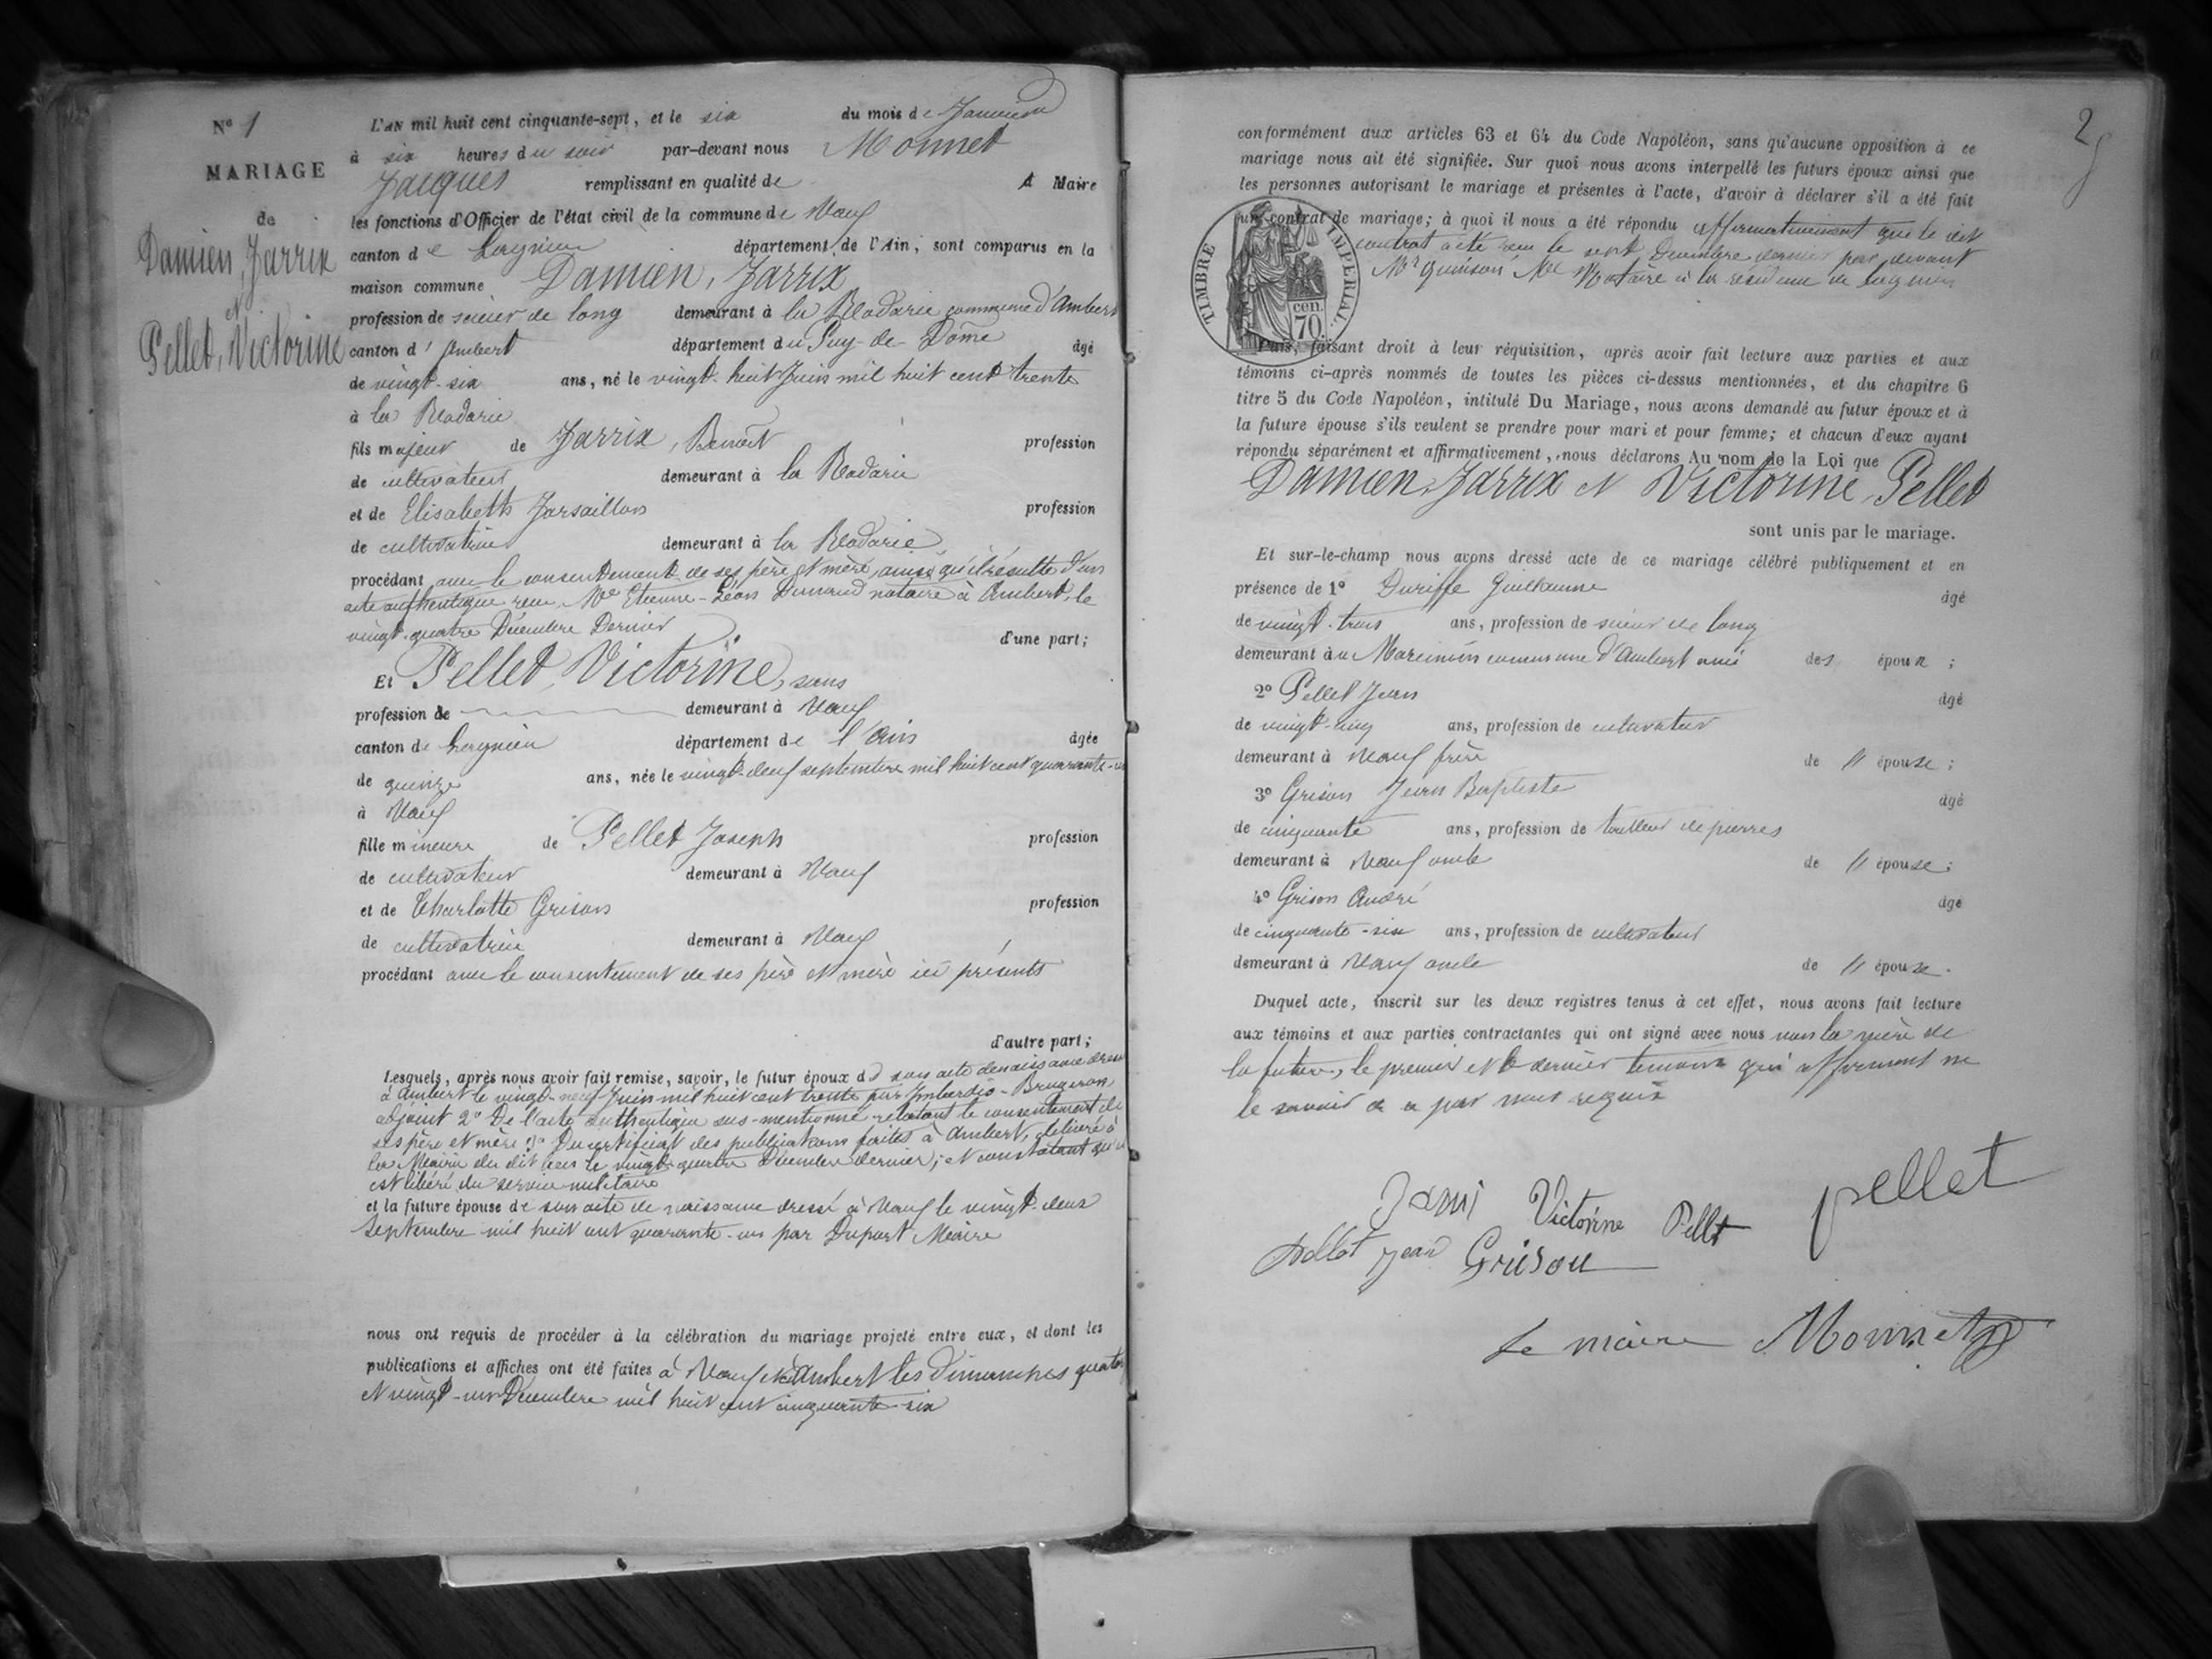 N° 1
MARIAGE
de
Damien, Jarrix
et
Pellet, Victorine
L'AN mil huit cent cinquante-sept, et le six du mois de Janvier
à six heures du soir par-devant nous Monnet
Jacques remplissant en qualité de Maire
les fonctions d'Officier de l'état civil de la commune de Vaux
canton de Lagnieu département de l'Ain, sont comparus en la
maison commune Damien, Jarrix
profession de scieur de long demeurant à la commune d'Ambert
canton d'Ambert département du Puy-de-Dôme âgé
de vingt-six ans, né le vingt-huit Juin mil huit cent trente
à la
fils majeur de Jarrix, Benoît profession
de cultivateur demeurant à la
et de Elisabeth Jarsaillon profession
de cultivatrice demeurant à la
procédant avec le consentement de ses père et mère, ainsi qu'il résulte d'un
acte authentique reçu Me Etienne-Léon notaire à Ambert, le
vingt-quatre Décembre Dernier d'une part;
Et Pellet, Victorine, sans
profession de demeurant à Vaux
canton de Lagnieu département de l'Ain âgée
de quinze ans, née le vingt-deux septembre mil huit cent quarante-un
à Vaux
fille mineure de Pellet Joseph profession
de cultivateur demeurant à Vaux
et de Charlotte Grison profession
de cultivatrice demeurant à Vaux
procédant avec le consentement de ses père et mère ici présents
d'autre part;
Lesquels, après nous avoir fait remise, savoir, le futur époux d son acte de naissance dressé
à Ambert le vingt-neuf Juin mil huit cent trente par
adjoint 2° De l'acte authentique sus-mentionné relatant le consentement de
ses père et mère 3° Du certificat des publications faites à Ambert, délivré à
la Mairie du dit lieu le vingt-quatre Décembre dernier; et constatant qu'il
est libéré du service militaire
et la future épouse de son acte de naissance dressé à Vaux le vingt-deux
Septembre mil huit cent quarante-un par Dupart Maire
nous ont requis de procéder à la célébration du mariage projeté entre eux, et dont les
publications et affiches ont été faites à Vaux et à Ambert les Dimanches quatorze
et vingt-un Décembre mil huit cent cinquante-six
2
conformément aux articles 63 et 64 du Code Napoléon, sans qu'aucune opposition à ce
mariage nous ait été signifiée. Sur quoi nous avons interpellé les futurs époux ainsi que
les personnes autorisant le mariage et présentes à l'acte, d'avoir à déclarer s'il a été fait
un contrat de mariage; à quoi il nous a été répondu affirmativement que le dit
contrat a été reçu le sept Décembre dernier par devant
Notaire à la résidence de Lagnieu
TIMBRE IMPERIAL.
70 cen.
Puis, faisant droit à leur réquisition, après avoir fait lecture aux parties et aux
témoins ci-après nommés de toutes les pièces ci-dessus mentionnées, et du chapitre 6
titre 5 du Code Napoléon, intitulé Du Mariage, nous avons demandé au futur époux et à
la future épouse s'ils veulent se prendre pour mari et pour femme; et chacun d'eux ayant
répondu séparément et affirmativement, nous déclarons Au nom de la Loi que
Damien, Jarrix et Victorine, Pellet
sont unis par le mariage.
Et sur-le-champ nous avons dressé acte de ce mariage célébré publiquement et en
présence de 1° Duriffe Guillaume âgé
de vingt-trois ans, profession de scieur de long
demeurant à commune d'Ambert ami des époux;
2° Pellet Jean âgé
de vingt-cinq ans, profession de cultivateur
demeurant à Vaux frère de l'épouse;
3° Grison Jean Baptiste âgé
de cinquante ans, profession de tailleur de pierres
demeurant à Vaux oncle de l'épouse;
4° Grison André âgé
de cinquante-six ans, profession de cultivateur
demeurant à Vaux oncle de l'épouse.
Duquel acte, inscrit sur les deux registres tenus à cet effet, nous avons fait lecture
aux témoins et aux parties contractantes qui ont signé avec nous non la mère de
la future, le premier et le dernier témoins qui affirment ne
le savoir de ce par nous requis
Jarri Victorine Pellet pellet
pellet jean Grison
Le maire Monnet